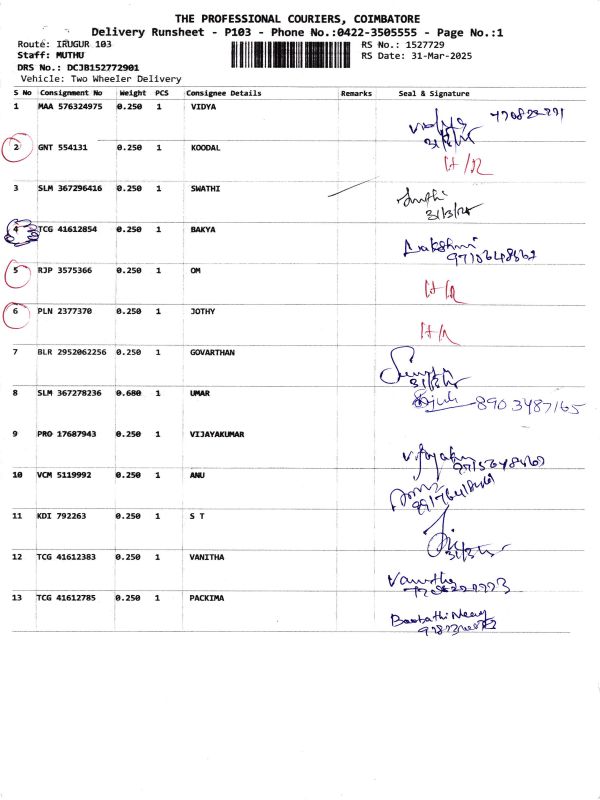 THE PROFESSIONAL COURIERS, COIMBATORE
Delivery Runsheet - P103 - Phone No.:0422-3505555 - Page No.:1
Route: IRUGUR 103 RS No.: 1527729
Staff: MUTHU RS Date: 31-Mar-2025
DRS No.: DCJB152772901
Vehicle: Two Wheeler Delivery
S No Consignment No Weight PCS Consignee Details Remarks Seal & Signature
1 MAA 576324975 0.250 1 VIDYA
2 GNT 554131 0.250 1 KOODAL
3 SLM 367296416 0.250 1 SWATHI
31/3/25
4 TCG 41612854 0.250 1 BAKYA
5 RJP 3575366 0.250 1 OM
6 PLN 2377370 0.250 1 JOTHY
7 BLR 2952062256 0.250 1 GOVARTHAN
8 SLM 367278236 0.680 1 UMAR
8903487165
9 PRO 17687943 0.250 1 VIJAYAKUMAR
10 VCM 5119992 0.250 1 ANU
11 KDI 792263 0.250 1 S T
12 TCG 41612383 0.250 1 VANITHA
13 TCG 41612785 0.250 1 PACKIMA